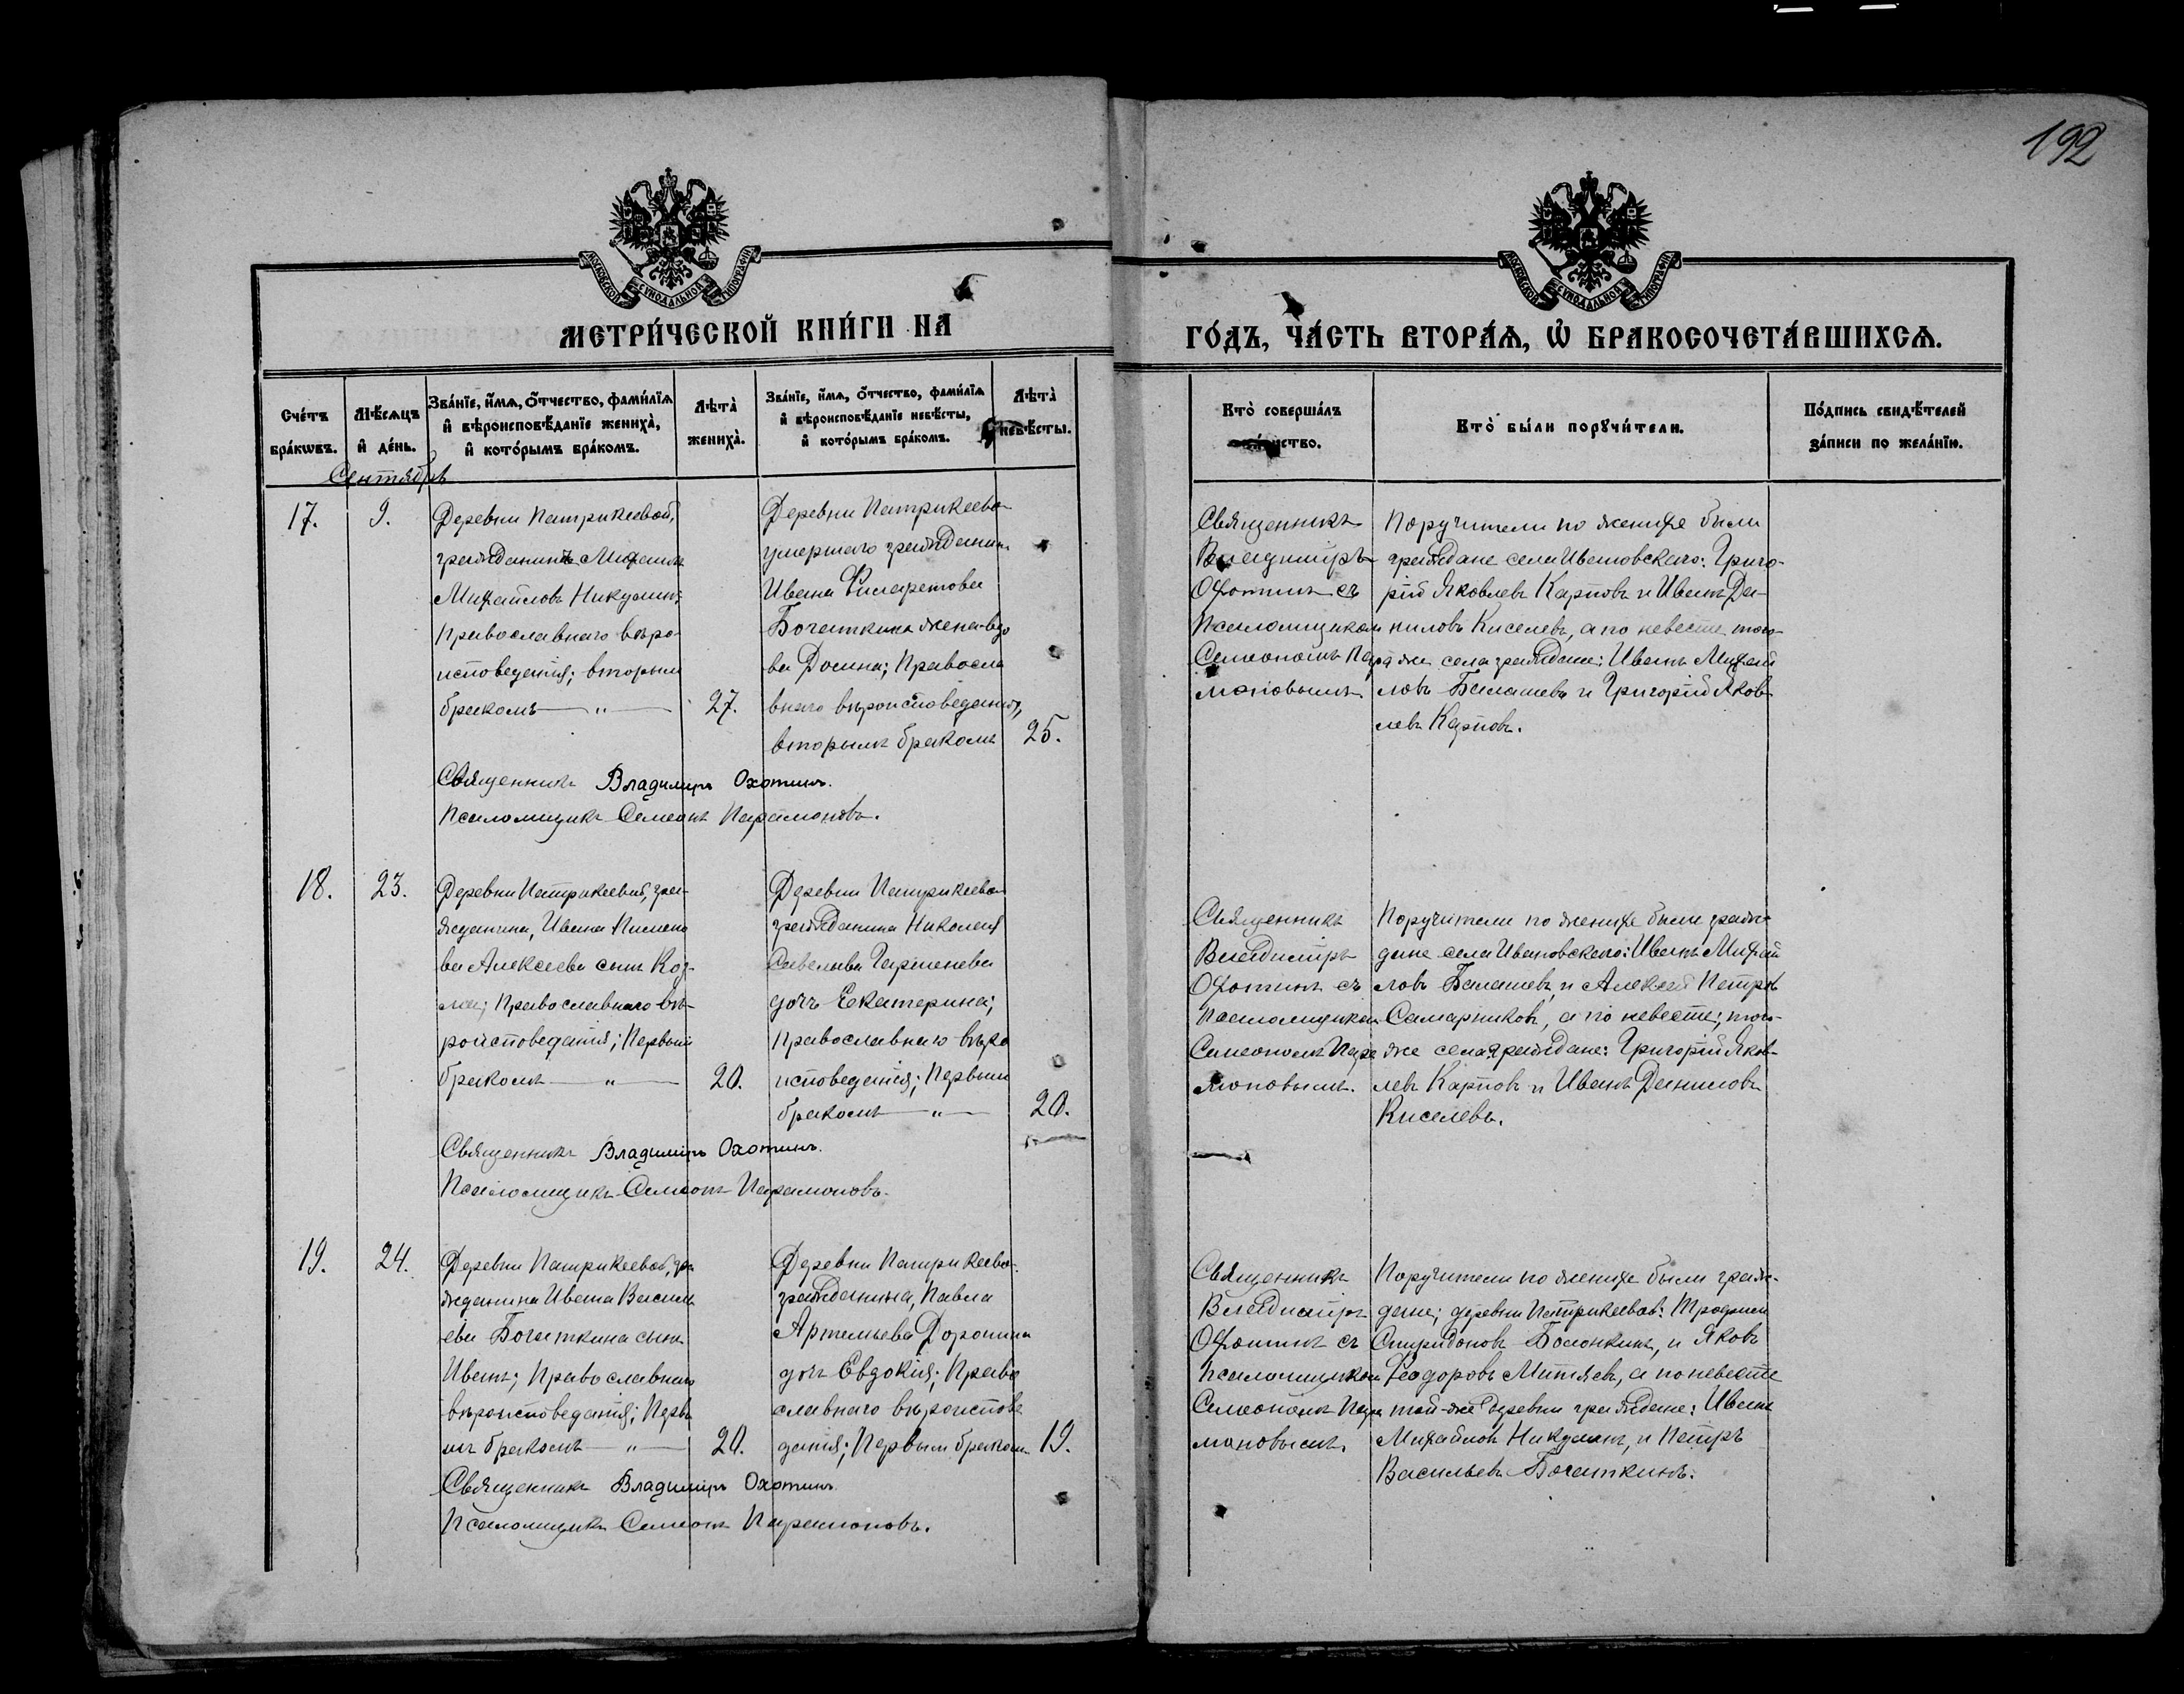 192
МОСКОВСКОЙ СѴНОДАЛЬНОЙ ТИПОГРАФІИ
МОСКОВСКОЙ СѴНОДАЛЬНОЙ ТИПОГРАФІИ
МЕТРИ́ЧЕСКОЙ КНИ́ГИ НА
ГО́ДЪ, ЧА́СТЬ ВТОРА́Ѧ, Ѡ҆ БРАКОСОЧЕТА́ВШИХСѦ.
Сче́тъ бра́кѡвъ.
Мѣ́сѧцъ и҆ де́нь.
Зва́нїе, и҆́мѧ, ѻ҆́тчество, фами́лїѧ
и҆ вѣроисповѣ́данїе жениха̀,
и҆ кото́рымъ бра́комъ.
Лѣта̀ жениха̀.
Зва́нїе, и҆́мѧ, ѻ҆́тчество, фами́лїѧ
и҆ вѣроисповѣ́данїе невѣ́сты,
и҆ кото́рымъ бра́комъ.
Лѣта̀ невѣ́сты.
Кто̀ соверша́лъ
Кто̀ бы́ли порꙋчи́тели.
По́дпись свидѣ́телей
за́писи по жела́нїю.
Сентябрь
17.
9.
Деревни Патрикеевой,
гражданинъ Михаилъ
Михайловъ Никулинъ;
Православнаго вѣро-
исповеданія; вторым
бракомъ — „ —
27.
Деревни Патрикеево
умершаго гражданин
Ивана Филаретова
Богаткина жена-вдо
ва Домна; Правосла
внаго вѣроисповеданія,
вторымъ бракомъ
25.
Священникъ
Владимиръ
Охотинъ съ
Псаломщиком
Симеономъ Пара
моновымъ
Поручители по женихе были
граждане села Ивановскаго: Григо-
рій Яковлевъ Карповъ и Иванъ Да-
ниловъ Киселевъ, а по невесте того-
же села граждане: Иванъ Михай
ловъ Балашевъ и Григорій Яков-
левъ Карповъ.
Священникъ Владимиръ Охотинъ.
Псаломщикъ Симеонъ Парамоновъ.
18.
23.
Деревни Патрикеевой, гра-
жданина, Ивана Пимено
ва Алексеева сынъ Коз-
ма; Православнаго вѣ-
роисповеданія; Первым
бракомъ — „ —
20.
Деревни Патрикеево
гражданина Николая
Савельева
дочь Екатерина;
Православнаго вѣро
исповеданія; Первым
бракомъ — „ —
20.
Священникъ
Владимиръ
Охотинъ съ
Псаломщиком
Симеономъ Пара
моновымъ.
Поручители по женихе были граж-
дане села Ивановскаго: Иванъ Михай
ловъ Балашевъ, и Алексей Петровъ
Самарниковъ, а по невесте; того-
же села граждане: Григорій Яков-
левъ Карповъ и Иванъ Даниловъ
Киселевъ.
Священникъ Владимиръ Охотинъ.
Псаломщикъ Симеонъ Парамоновъ.
19.
24.
Деревни Патрикеевой, гра
жданина Ивана Василь
ева Богаткина сынъ
Иванъ; Православнаго
вѣроисповеданія; Первы
мъ бракомъ — „ —
20.
Деревни Патрикеево-
гражданина, Павла
Артемьева Доронина
дочь Евдокія; Право
славнаго вѣроиспове
данія; Первым бракомъ
19.
Священникъ
Владимиръ
Охотинъ съ
Псаломщиком
Симеономъ Пара
моновымъ.
Поручители по женихе были граж-
дане; деревни Патрикеевой:
Спиридоновъ Болонкинъ, и Яковъ
Феодоровъ Митяевъ, а по невесте
той-же деревни граждане: Иванъ
Михайловъ Никулинъ, и Петръ
Васильевъ Богаткинъ.
Священникъ Владимиръ Охотинъ.
Псаломщикъ Симеонъ Парамоновъ.